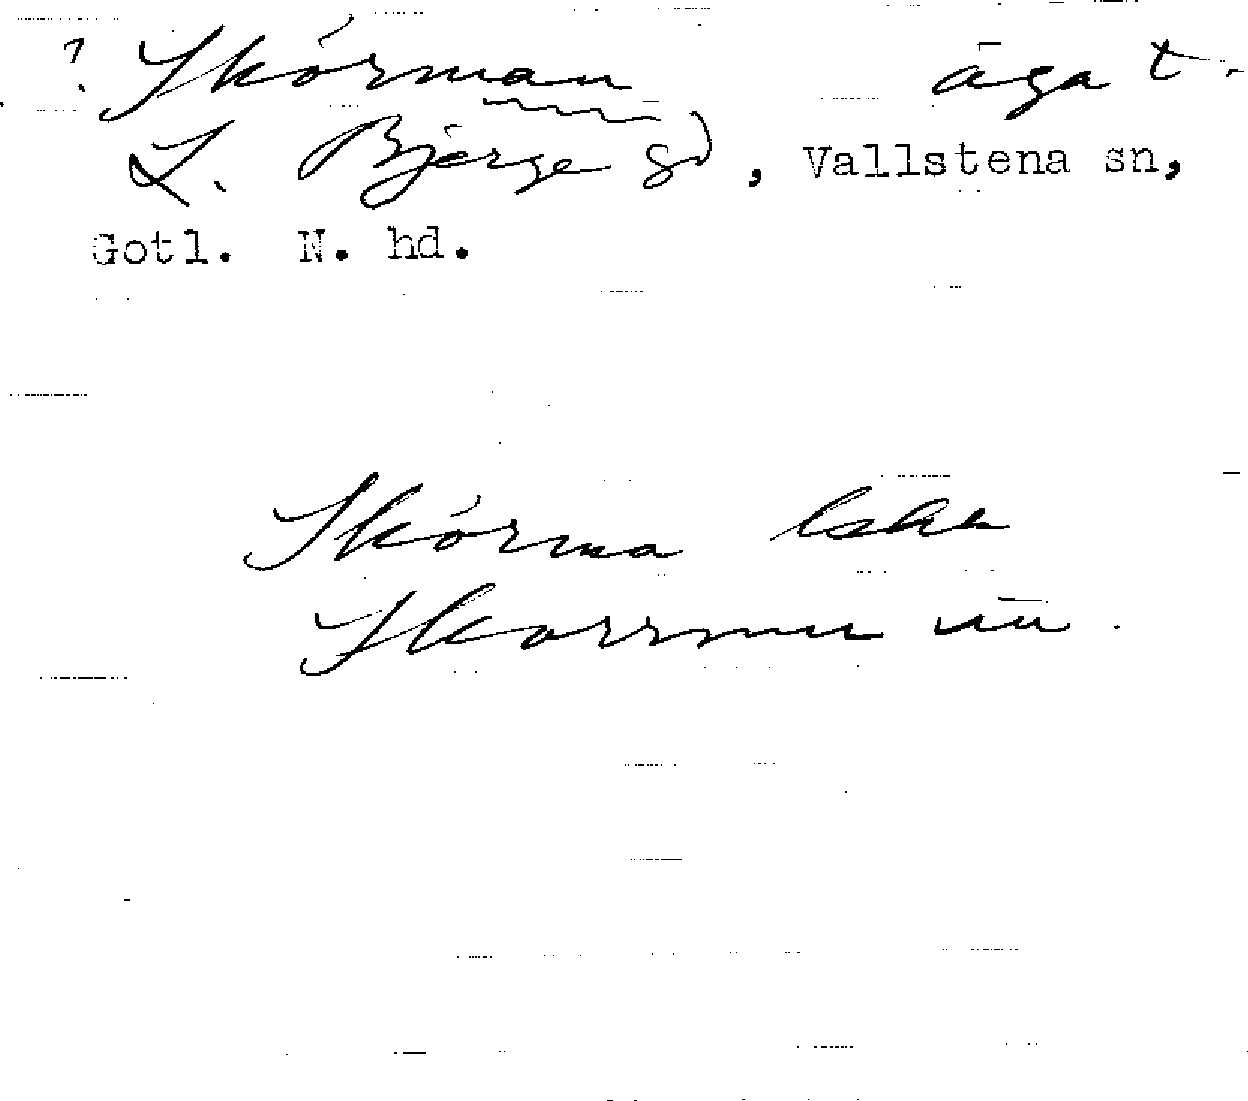 ? Skórman äga t.
L. Bjerge gd, Vallstena sn,
Gotl. N. hd.
Skórma
Skorrmu